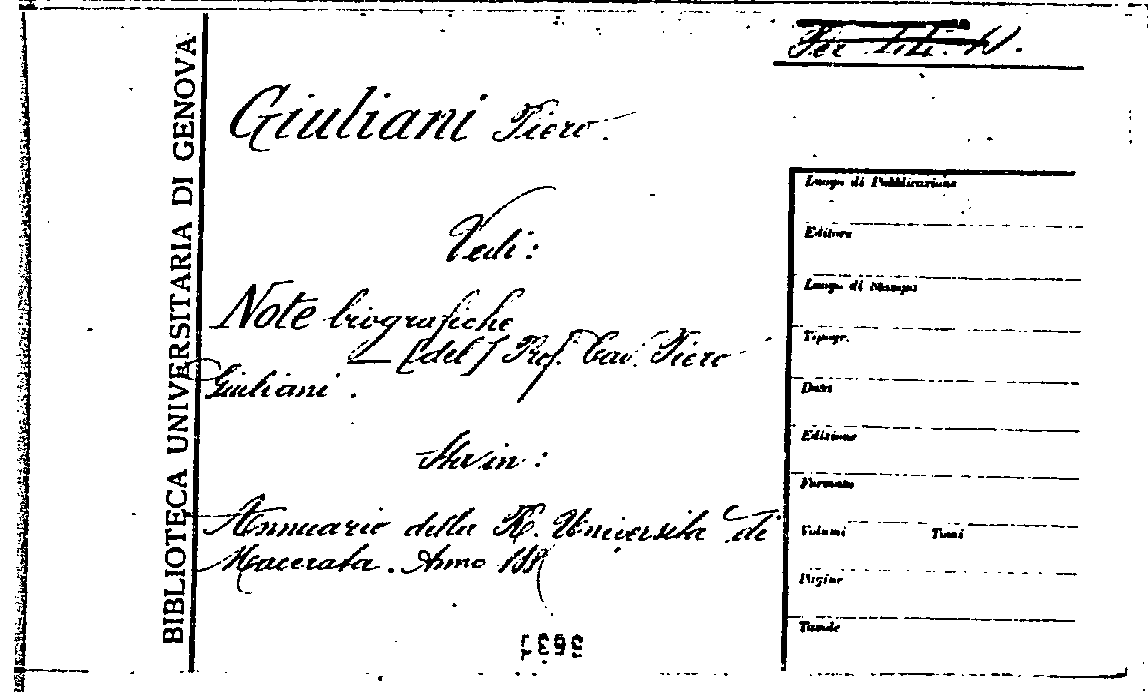 BIBLIOTECA UNIVERSITARIA DI GENOVA
Giuliani Piero.
Vedi:
Note biografiche
[del] Prof. Cav. Piero
Giuliani.
Sta in:
Annuario della R. Università di
Macerata. Anno
Luogo di Pubblicazione
Editore
Luogo di Stampa
Tipogr.
Data
Edizione
Formato
Volumi Tomi
Pagine
Tavole